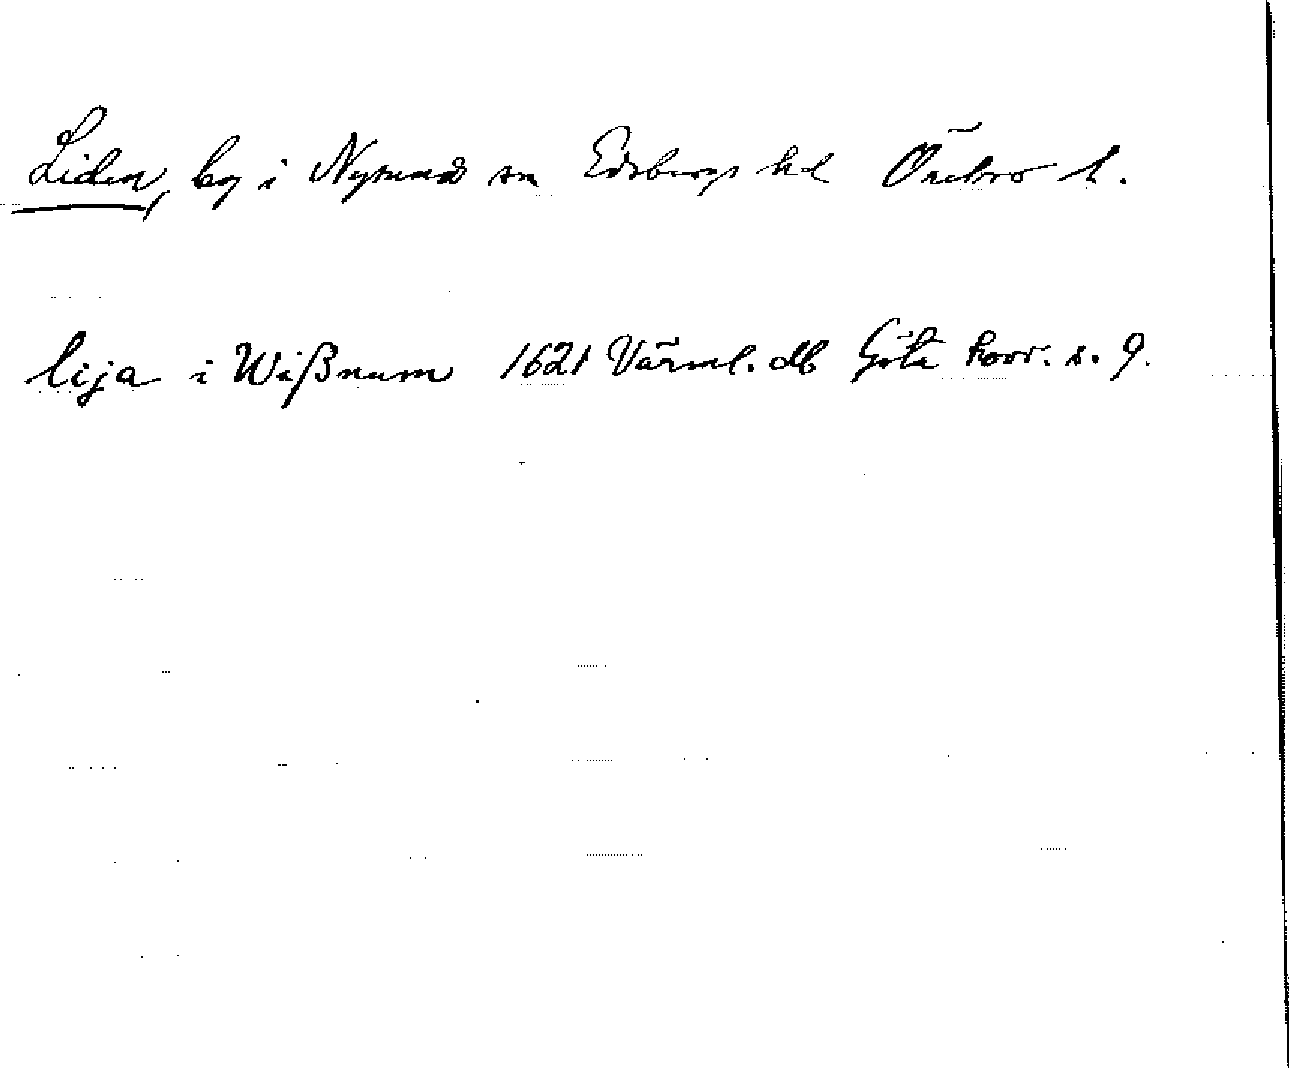 Liden, by i Nysund sn Edsbergs hd Örebro l.
lija i Wißnum 1621 Värml. db Göta hovr. s. 9.